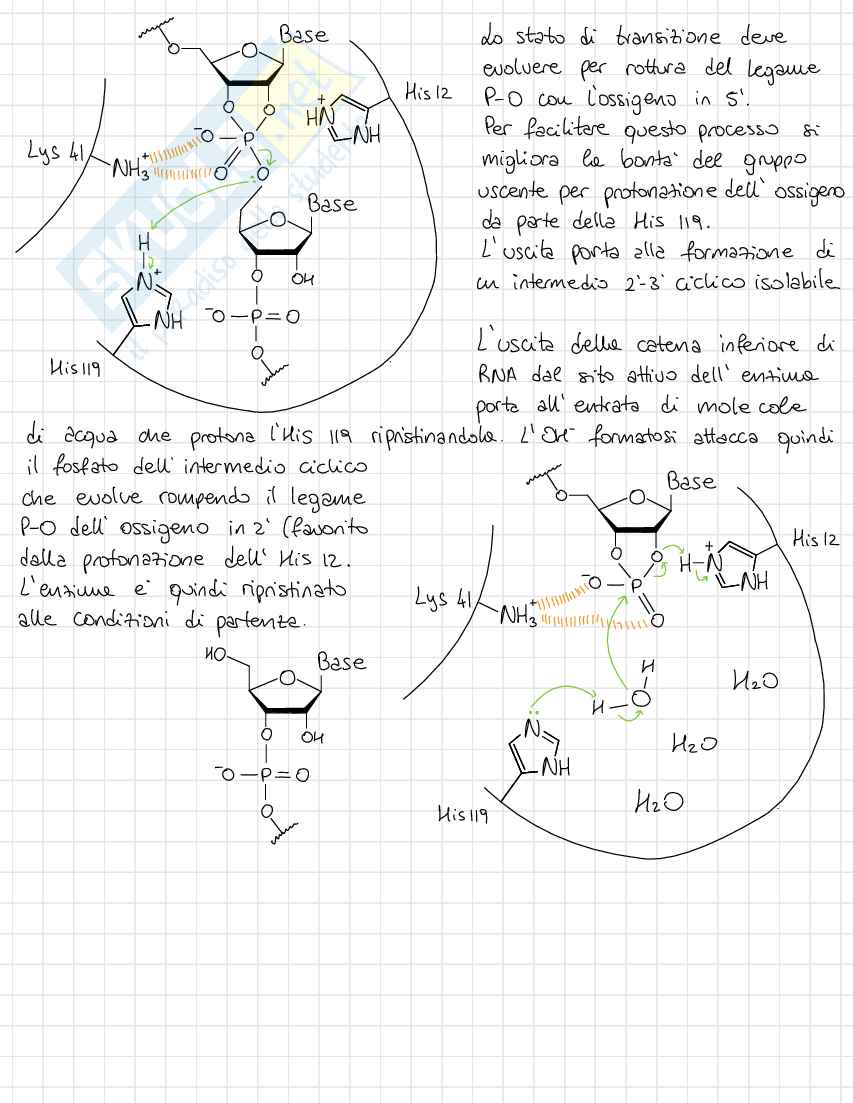 Lo stato di transizione deve
evolvere per rottura del legame
P-O con l'ossigeno in 5'.
Per facilitare questo processo si
migliora la bontà del gruppo
uscente per protonazione dell'ossigeno
da parte della His 119.
L'uscita porta alla formazione di
un intermedio 2'-3' ciclico isolabile
Base
O
O
O
O
His 12
HN+
NH
-O
P
O
O
Lys 41
NH3+
Base
O
H
N+
NH
O
OH
-O-P=O
O
His 119
L'uscita della catena inferiore di
RNA dal sito attivo dell'enzima
porta all'entrata di molecole
di acqua che protona l'His 119 ripristinandola. L'OH- formatosi attacca quindi
il fosfato dell'intermedio ciclico
che evolve rompendo il legame
P-O dell'ossigeno in 2' (favorito
dalla protonazione dell'His 12.
L'enzima è quindi ripristinato
alle condizioni di partenza.
Base
O
O
O
O
His 12
H-N+
NH
-O
P
O
Lys 41
NH3+
H
H-O
H2O
H2O
H2O
N
NH
His 119
HO
Base
O
O
OH
-O-P=O
O
SKUOLA.net
il paradiso dello studente